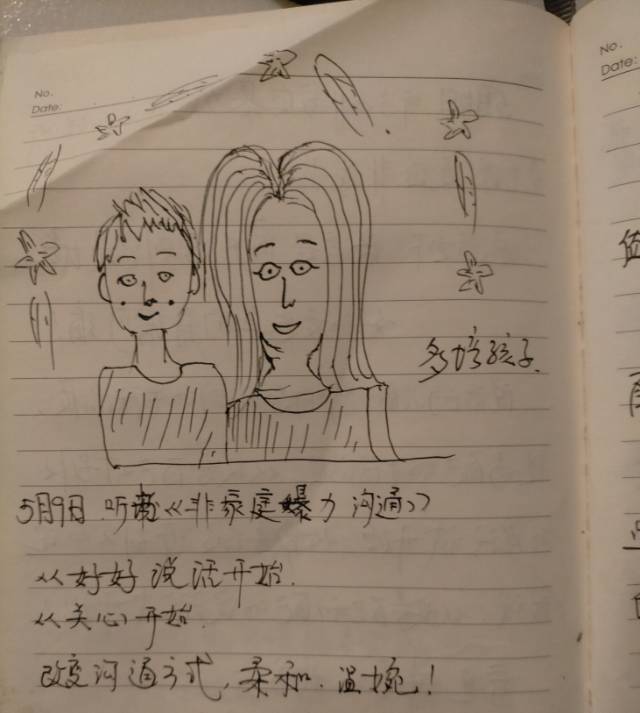 No.
Date:
No.
Date:
多培孩子.
5月9日 听《非家庭暴力沟通》
从好好说话开始.
从关心开始.
改变沟通方式,柔和.温婉!